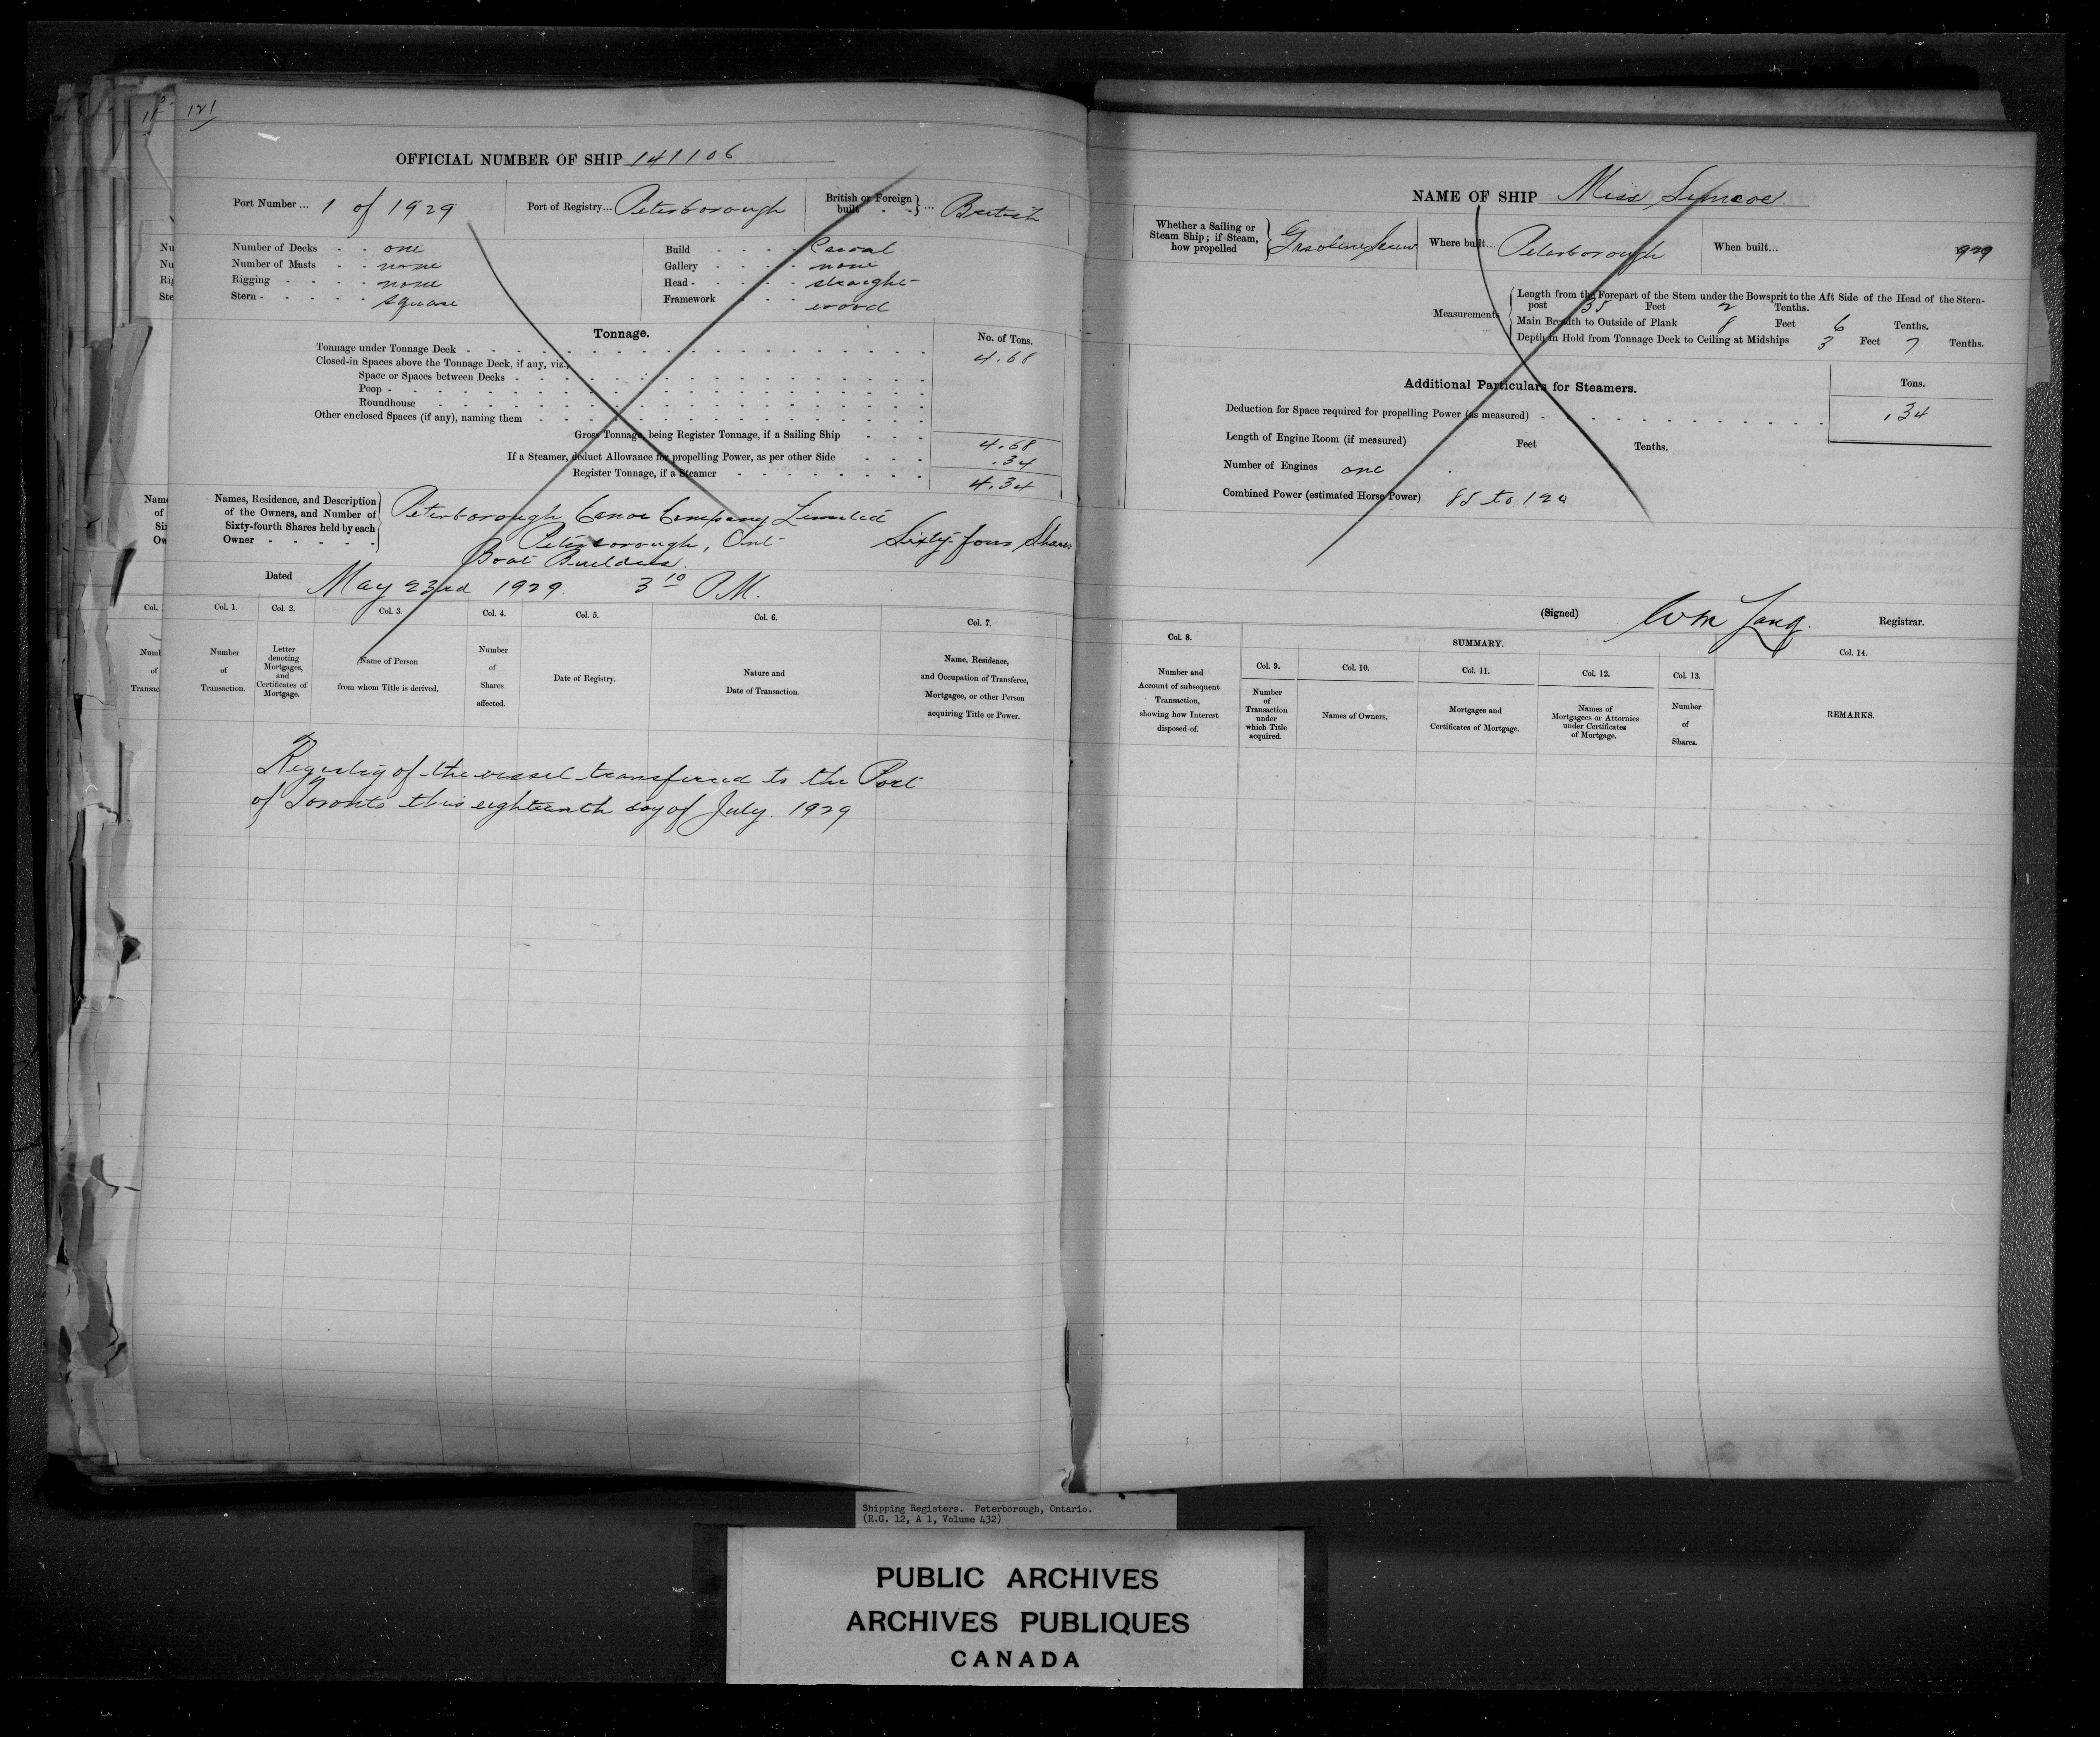 121
OFFICIAL NUMBER OF SHIP 141106
Port Number ... 1 of 1929
Port of Registry... Peterborough
British or Foreign built } ... British
Number of Decks - - one
Number of Masts - - none
Rigging - - - - none
Stern - - - - - square
Build - - - - Carvel
Gallery - - - - none
Head - - - - - straight
Framework - - - wood
Tonnage.
No. of Tons.
Tonnage under Tonnage Deck - 4.68
Closed-in Spaces above the Tonnage Deck, if any, viz.,
Space or Spaces between Decks -
Poop -
Roundhouse -
Other enclosed Spaces (if any), naming them -
Gross Tonnage, being Register Tonnage, if a Sailing Ship - - - 4.68
If a Steamer, deduct Allowance for propelling Power, as per other Side - - - .34
Register Tonnage, if a Steamer - 4.34
Names, Residence, and Description of the Owners, and Number of Sixty-fourth Shares held by each Owner - - - - -
Peterborough Canoe Company Limited
Peterborough, Ont - Sixty-four Shares
Boat Builders.
Dated May 23rd 1929. 3 10 P.M.
Col. 1. Col. 2. Col. 3. Col. 4. Col. 5. Col. 6. Col. 7.
Number of Transaction.
Letter denoting Mortgages, and Certificates of Mortgage.
Name of Person from whom Title is derived.
Number of Shares affected.
Date of Registry.
Nature and Date of Transaction.
Name, Residence, and Occupation of Transferee, Mortgagee, or other Person acquiring Title or Power.
Registry of the vessel transferred to the Port
of Toronto this eighteenth day of July. 1929
NAME OF SHIP Miss Simcoe
Whether a Sailing or Steam Ship; if Steam, how propelled } Gasoline Screw
Where built... Peterborough
When built... 1929
Measurements
Length from the Forepart of the Stem under the Bowsprit to the Aft Side of the Head of the Stern-
post 35 Feet 2 Tenths.
Main Breadth to Outside of Plank 8 Feet 6 Tenths.
Depth in Hold from Tonnage Deck to Ceiling at Midships 3 Feet 7 Tenths.
Additional Particulars for Steamers.
Tons.
Deduction for Space required for propelling Power (as measured) - .34
Length of Engine Room (if measured) Feet Tenths.
Number of Engines one
Combined Power (estimated Horse Power) 85 to 120
(Signed) Wm Lang. Registrar.
Col. 8.
SUMMARY.
Col. 9. Col. 10. Col. 11. Col. 12. Col. 13. Col. 14.
Number and Account of subsequent Transaction, showing how Interest disposed of.
Number of Transaction under which Title acquired.
Names of Owners.
Mortgages and Certificates of Mortgage.
Names of Mortgagees or Attornies under Certificates of Mortgage.
Number of Shares.
REMARKS.
Shipping Registers. Peterborough, Ontario.
(R.G. 12, A 1, Volume 432)
PUBLIC ARCHIVES
ARCHIVES PUBLIQUES
CANADA